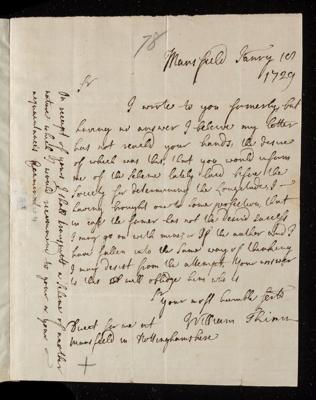 78
Mansfield Janry 18
1729
Sr
I wrote to you formerly, but
having no answer I beleive my letter
has not reach'd your hands, the desire
of which was this, that you would inform
me of the scheme lately laid before the
Society for determining the Longitude, I
having brought one to some perfection, that
in case the former has not the desird success
I may go on with mine, or If the author and I
have fallen into the same way of thinking
I may desist from the attempt, Your answer
to this will oblidge him who is
Sr
your most humble servt
William
Direct for me at
Mansfield in Nottinghamshire
On receipt of yours I shall transmitt a scheme of another
nature which I would recommend to your or your
acquaintances